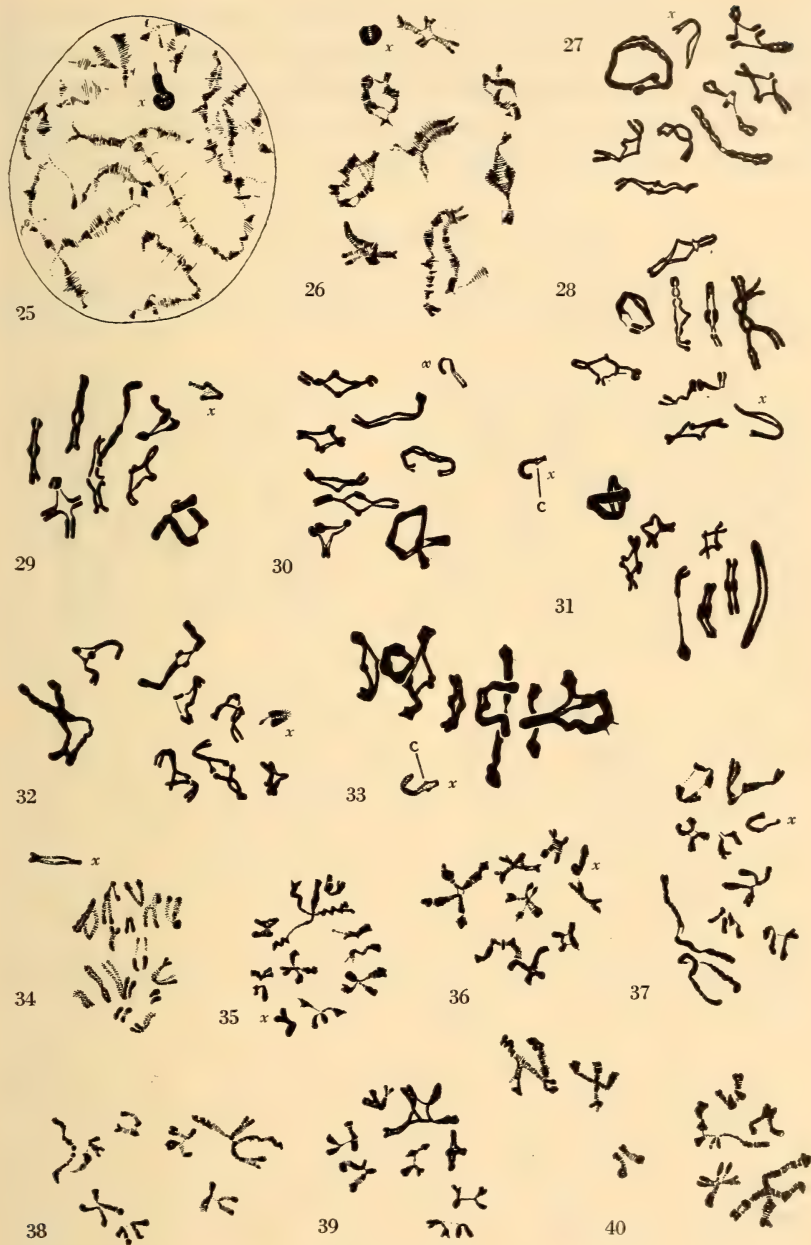 x
25
x
26
x
27
28
x
x
29
x
30
x
C
31
x
32
C
x
33
x
34
35
x
x
36
x
37
38
39
40